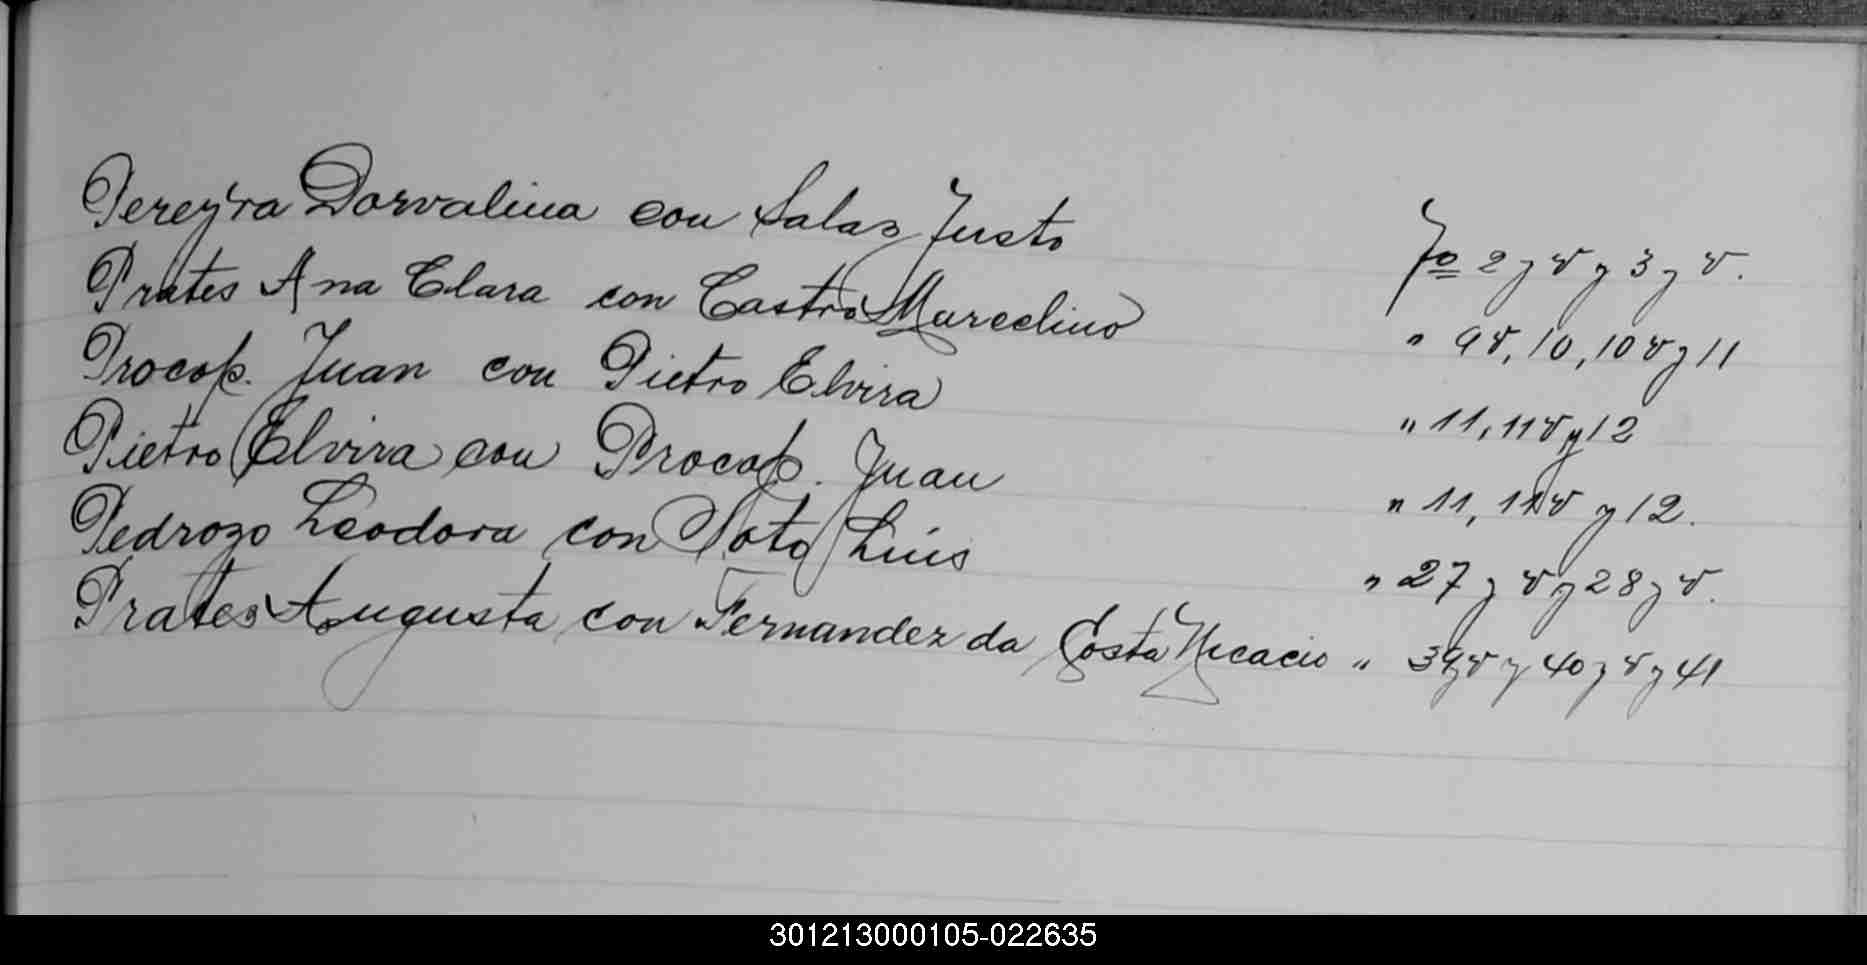 Pereyra Dorvalina con Salaz Justo Fo 2 y v y 3 y v.
Prates Ana Clara con Castro Marcelino " 9v, 10, 10v y 11
Procop. Juan con Pietro Elvira " 11, 11v y 12
Pietro Elvira con Procop. Juan " 11, 11v y 12.
Pedrozo Leodora con Soto Luis " 27 y v y 28 y v.
Prates Augusta con Fernandez da Costa Nicacio " 39v y 40 y v y 41
301213000105-022635